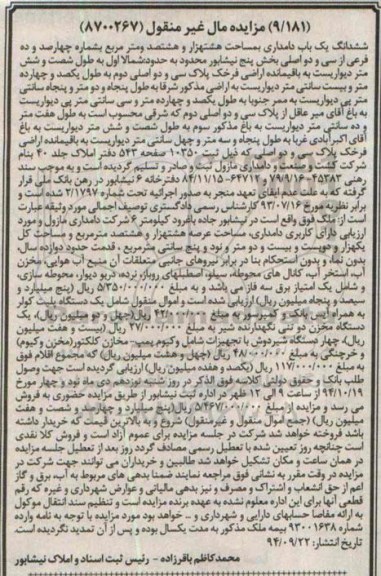 (۹/۱۸۱) مزایده مال غیر منقول (۸۷۰۰۲۶۷)
ششدانگ یک باب دامداری بمساحت هشتهزار و هشتصد ومتر مربع بشماره چهارصد و ده
فرعی از سی و دو اصلی بخش پنج نیشابور محدود به حدود:شمالا اول به طول شصت و شش
متر دیواریست به باقیمانده اراضی فرخک پلاک سی و دو اصلی دوم به طول یکصد و چهارده
متر و بیست سانتی متر دیواریست به اراضی مذکور شرقا به طول پنجاه و دو متر و پنجاه سانتی
متر پی دیواریست به ممر جنوبا به طول یکصد و چهارده متر و سی سانتی متر پی دیواریست
به باغ آقای میر عاقل از پلاک سی و دو اصلی دوم که شرقی محسوب است به طول هفت متر
و ده سانتی متر دیواریست به باغ مذکور سوم به طول شصت و شش متر دیواریست به باغ
آقای آذر آبادی غربا به طول پنجاه و سه متر و چهل سانتی متر دیواریست به باقیمانده اراضی
فرخک پلاک سی و دو اصلی که ذیل ثبت ۱۰۳۵۰ صفحه ۵۴۳ دفتر املاک جلد ۴۰ بنام
شرکت کشت و صنعت و دامداری مازول ثبت و صادر و تسلیم گردیده است و به موجب سند
رهنی ۴۵۳۸۳-۷۹/۹/۱۶ و ۶۴۷۱۲-۸۴/۱۱/۱۵ دفتر خانه ۶ نیشابور در رهن بانک ملی قرار
گرفته که به علت عدم ایفای تعهد منجر به صدور اجرائیه تحت شماره ۲/۱۷۹۷ شده است و
برابر نظریه مورخ ۹۳/۰۷/۱۶ کارشناس رسمی دادگستری توصیف اجمالی مورد وثیقه عبارت
است از: ملک فوق واقع است در نیشابور جاده باغرود کیلومتر ۶ شرکت دامداری مازول و مورد
ارزیابی دارای کاربری دامداری، مساحت عرصه هشتهزار و هشتصد مترمربع و مساحت کل
یکهزار و دویست و بیست و دو متر و نود و پنج سانتی مترمربع ، قدمت حدود دوازده سال،
بدون نما، و بدون استحکام بنا در برابر نیروهای جانبی متعلقات آن منبع آب هوایی، مخزن
آب، استخر آب، کانال های محوطه، سیلو، اصطبلهای روباز، نرده، دربو دیوار، محوطه سازی،
و شامل یک امتیاز برق سه فاز می باشد و به مبلغ ۵/۳۵۰/۰۰۰/۰۰۰ ریال (پنج میلیارد و
سیصد و پنجاه میلیون ریال) ارزیابی شده است و اموال منقول شامل یک دستگاه پلیت کولر
به همراه شیر بانکی و کمپرسور به مبلغ ۴۲/۰۰۰/۰۰۰ ریال(چهل و دو میلیون ریال)، یک
دستگاه مخزن دو تنی نگهدارنده شیر به مبلغ ۲۷/۰۰۰/۰۰۰ ریال (بیست و هفت میلیون
ریال)، چهار دستگاه شیردوش با تجهیزات شامل وکیوم پمپ- مخازن کلکتور(مخزن وکیوم)
و خرچنگی به مبلغ ۴۸/۰۰۰/۰۰۰ ریال (چهل و هشت میلیون ریال) که مجموع اقلام فوق
به مبلغ ۱۱۷/۰۰۰/۰۰۰ ریال (یکصد و هفده میلیون ریال) ارزیابی گردیده است جهت وصول
طلب بانک و حقوق دولتی کلاسه فوق الذکر در روز شنبه نوزدهم دی ماه نود و چهار مورخ
۹۴/۱۰/۱۹ از ساعت ۹ الی ۱۲ ظهر در اداره ثبت نیشابور از طریق مزایده حضوری به فروش
می رسد و مزایده از مبلغ ۵/۴۶۷/۰۰۰/۰۰۰ ریال(پنج میلیارد و چهارصد و شصت و هفت
میلیون ریال) (جمع اموال منقول و غیرمنقول) شروع و به بالاترین قیمت که خریدار داشته
باشد فروخته خواهد شد شرکت در جلسه مزایده برای عموم آزاد است و فروش کلا نقدی
است چنانچه روز تعیین شده با تعطیل رسمی مصادف گردد روز بعد از تعطیل جلسه مزایده
در همان ساعت و مکان تشکیل خواهد شد طالبین و خریداران می توانند جهت شرکت در
مزایده در وقت مقرر به نشانی فوق مراجعه نمایند ضمنا بدهی های مربوط به آب، برق و گاز
اعم از حق انشعاب و اشتراک و مصرف و نیز بدهی مالیاتی و عوارض شهرداری و غیره که رقم
قطعی آنها برای این اداره معلوم نشده به عهده برنده مزایده است و تنظیم سند انتقال موکول
به ارائه مفاصا حسابهای دارایی و شهرداری و .. خواهد بود مورد مزایده با توجه به نامه وارده
شماره ۹۳۰۰۱۶۳۸ بیمه ملک مذکور به مدت یکسال بوده و پس از آن تمدید نگردیده است.
تاریخ انتشار: ۹۴/۰۹/۲۲
محمدکاظم باقرزاده - رئیس ثبت اسناد و املاک نیشابور